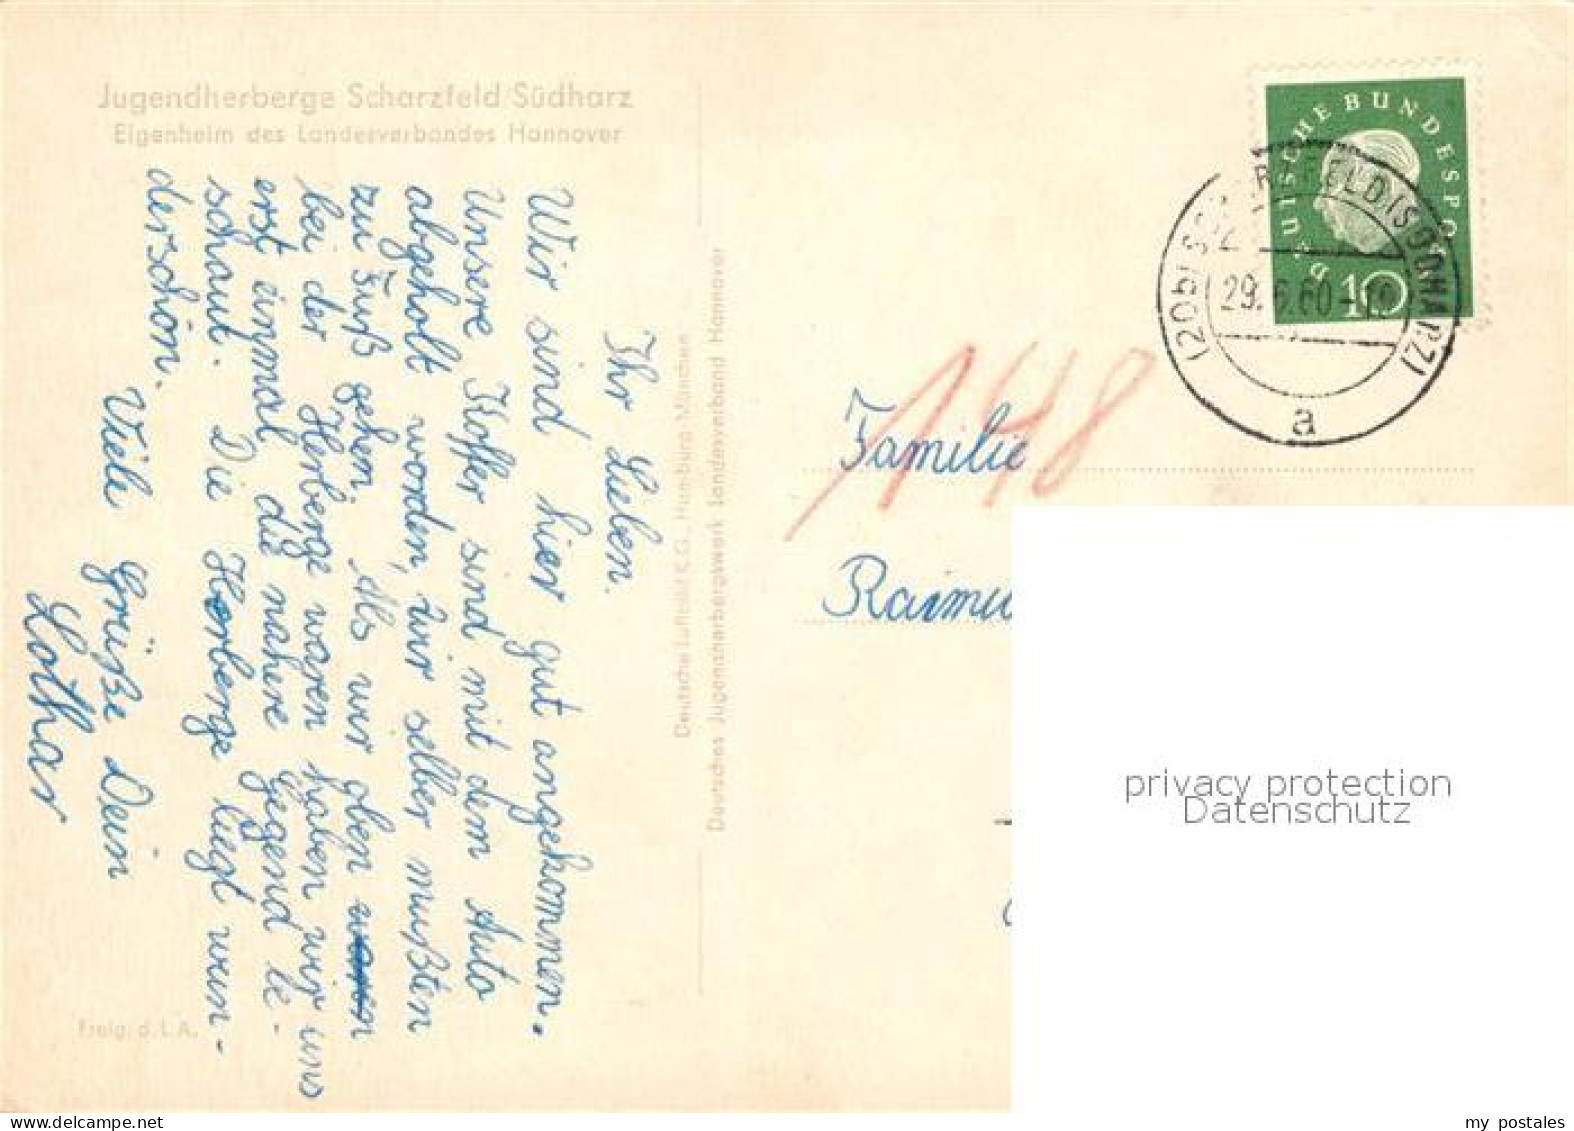 Jugendherberge Scharzfeld/Südharz
Eigenheim des Landesverbandes Hannover
Ihr Lieben.
Wir sind hier gut angekommen.
Unsere Koffer sind mit dem Auto
abgeholt worden, wir selber mußten
zu Fuß gehen. Als wir oben waren
bei der Herberge waren haben wir uns
erst einmal die nähere Gegend be-
schaut. Die Herberge liegt wun-
derschön.
Viele Grüße Dein
Lothar
Freig. d. L.A.
Deutsche Luftbild K.G., Hamburg/München
Deutsches Jugendherbergswerk Landesverband Hannover
DEUTSCHE BUNDESPOST
10
(20b) SCHARZFELD (SÜDHARZ)
29.6.60
a
148
Familie
Raimu
privacy protection
Datenschutz
my postales